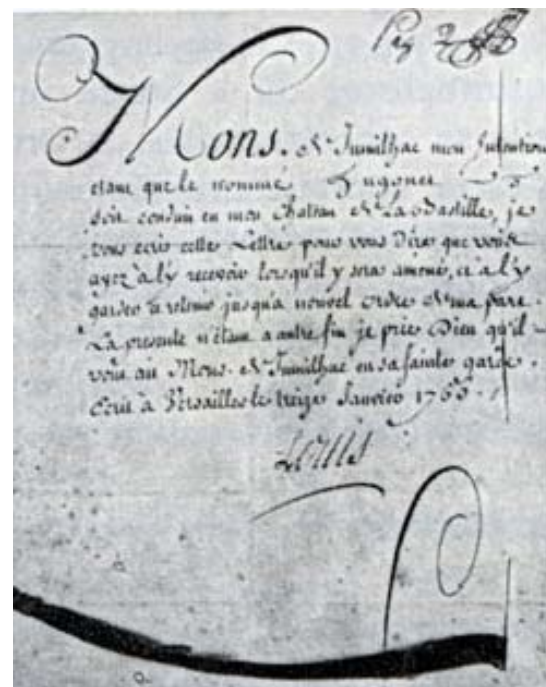 Mons. de Jumilhac mon Intention
etant que le nommé Hugonet
soit conduit en mon Chateau de La Bastille, je
vous ecris cette Lettre pour vous Dire que vous
ayez a l'y recevoir lorsqu'il y sera amené, et a l'y
garder et retenir jusqu'a nouvel ordre de ma part.
La presente n'étant a autre fin je prie Dieu qu'il
vous ait Mons. de Jumilhac en sa sainte garde.
Ecrit à Versailles le treize Janvier 1765.
Louis